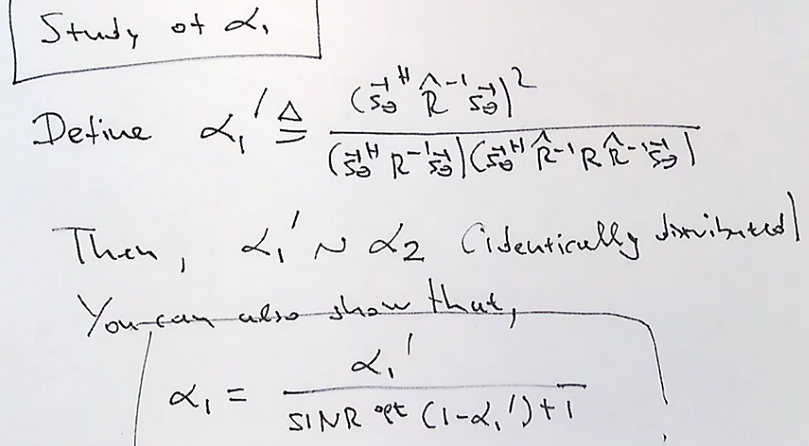 Study of α₁
Define α₁' ≜ (s⃗_θ^H R̂⁻¹ s⃗_θ)² / (s⃗_θ^H R⁻¹ s⃗_θ)(s⃗_θ^H R̂⁻¹ R R̂⁻¹ s⃗_θ)
Then, α₁' ~ α₂ (identically distributed)
You can also show that,
α₁ = α₁' / SINR^opt (1-α₁')+1